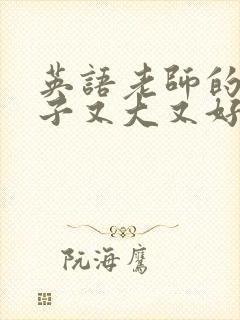 英語老師的
子又大又好
阮海鷹